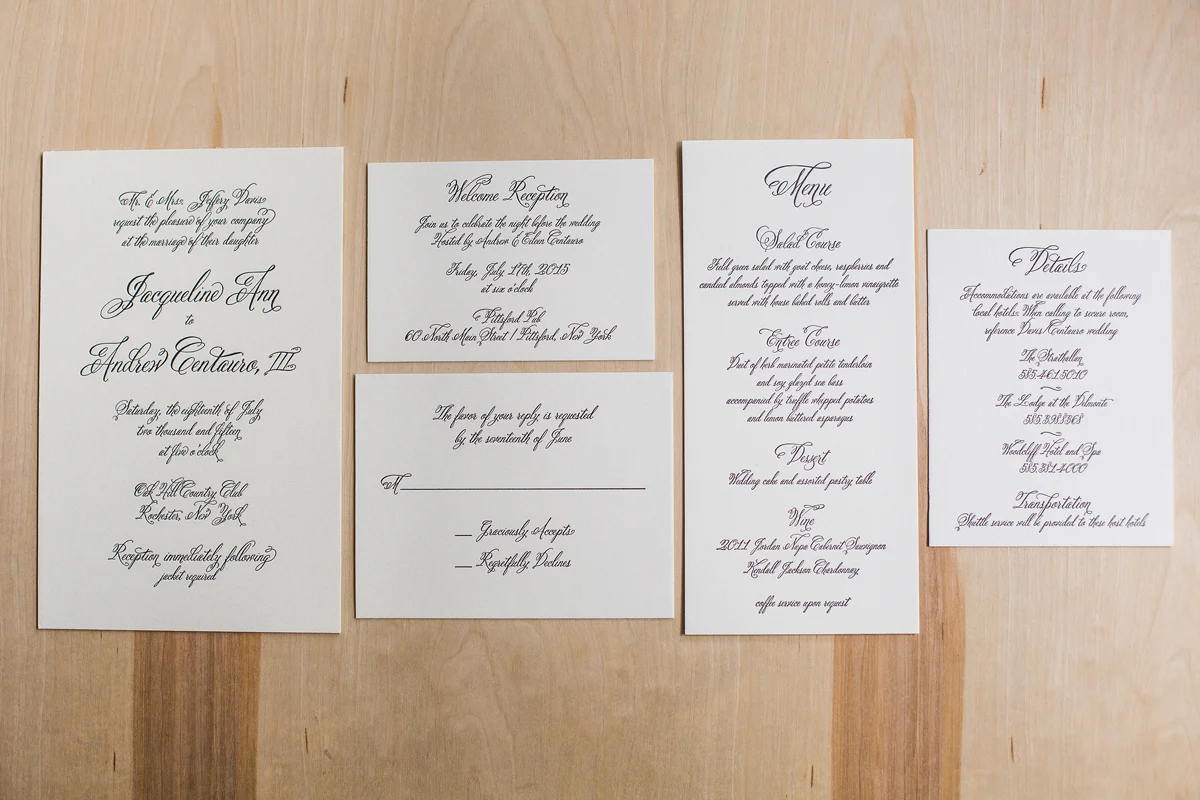 Mr. & Mrs. Jeffery Davis
request the pleasure of your company
at the marriage of their daughter
Jacqueline Ann
to
Andrew Centauro, III
Saturday, the eighteenth of July
two thousand and fifteen
at five o'clock
Oak Hill Country Club
Rochester, New York
Reception immediately following
jacket required
Welcome Reception
Join us to celebrate the night before the wedding
Hosted by Andrew & Eileen Centauro
Friday, July 17th, 2015
at six o'clock
Pittsford Pub
60 North Main Street / Pittsford, New York
The favor of your reply is requested
by the seventeenth of June
M
Graciously Accepts
Regretfully Declines
Menu
Salad Course
Field green salad with goat cheese, raspberries and
candied almonds topped with a honey-lemon vinaigrette
served with house baked rolls and butter
Entrée Course
Duet of herb marinated petite tenderloin
and soy glazed sea bass
accompanied by truffle whipped potatoes
and lemon buttered asparagus
Dessert
Wedding cake and assorted pastry table
Wine
2011 Jordan Napa Cabernet Sauvignon
Kendall Jackson Chardonnay
coffee service upon request
Details
Accommodations are available at the following
local hotels. When calling to secure room,
reference Davis/Centauro wedding
The Strathallan
585.461.5010
The Lodge at the Delmonte
Woodcliff Hotel and Spa
585.381.4000
Transportation
Shuttle service will be provided to these host hotels